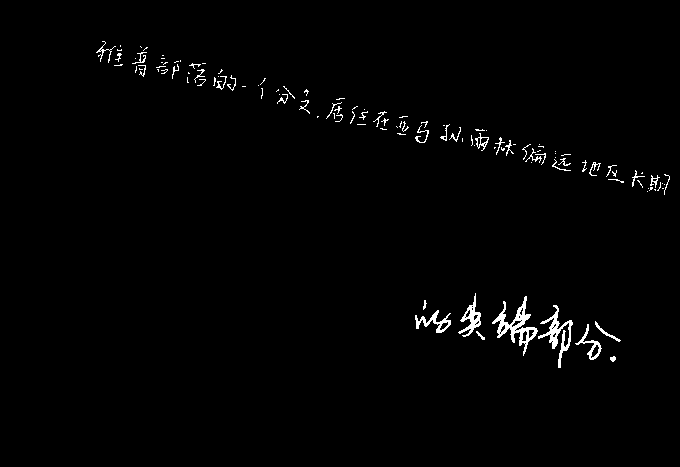 雅普部落的一个分支,居住在亚马孙雨林偏远地区长期
的尖端部分.